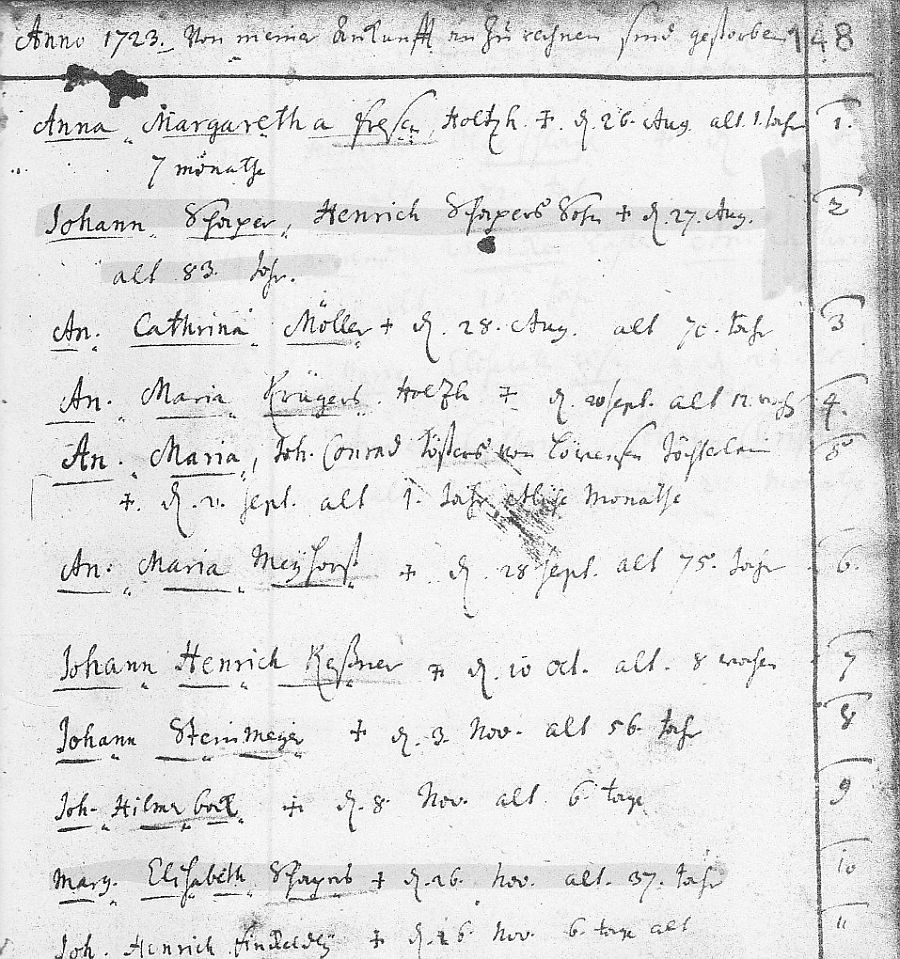 Anno 1723. Von meiner Ankunfft an zu rechnen sind gestorben 148
Anna Margaretha Holtzh. † d. 26. Aug. alt 1. Jahr 1.
7 monathe
Johann Schaper, Henrich Schapers Sohn † d. 27. Aug. 2
alt 83. Jahr.
An. Cathrina Möller † d. 28. Aug. alt 70. Jahr 3
An. Maria Krügers. Holtzh † d. sept. alt 4.
An. Maria, Joh. Conrad von Töchterlein 5
†. d. 21. sept. alt 1. Jahr etliche Monathe
An. Maria Meyhorst † d. 28 sept. alt 75. Jahr 6.
Johann Henrich Keßner † d. 10 Oct. alt. 8 wochen 7
Johann Steinmeyer † d. 3. Nov. alt 56. Jahr 8
Joh. Hilmar † d. 8. Nov. alt 6. tage 9
Marg. Elisabeth † d. 26. Nov. alt. 37. Jahr 10
Joh. Henrich † d. 26 Nov. 6. tage alt 11